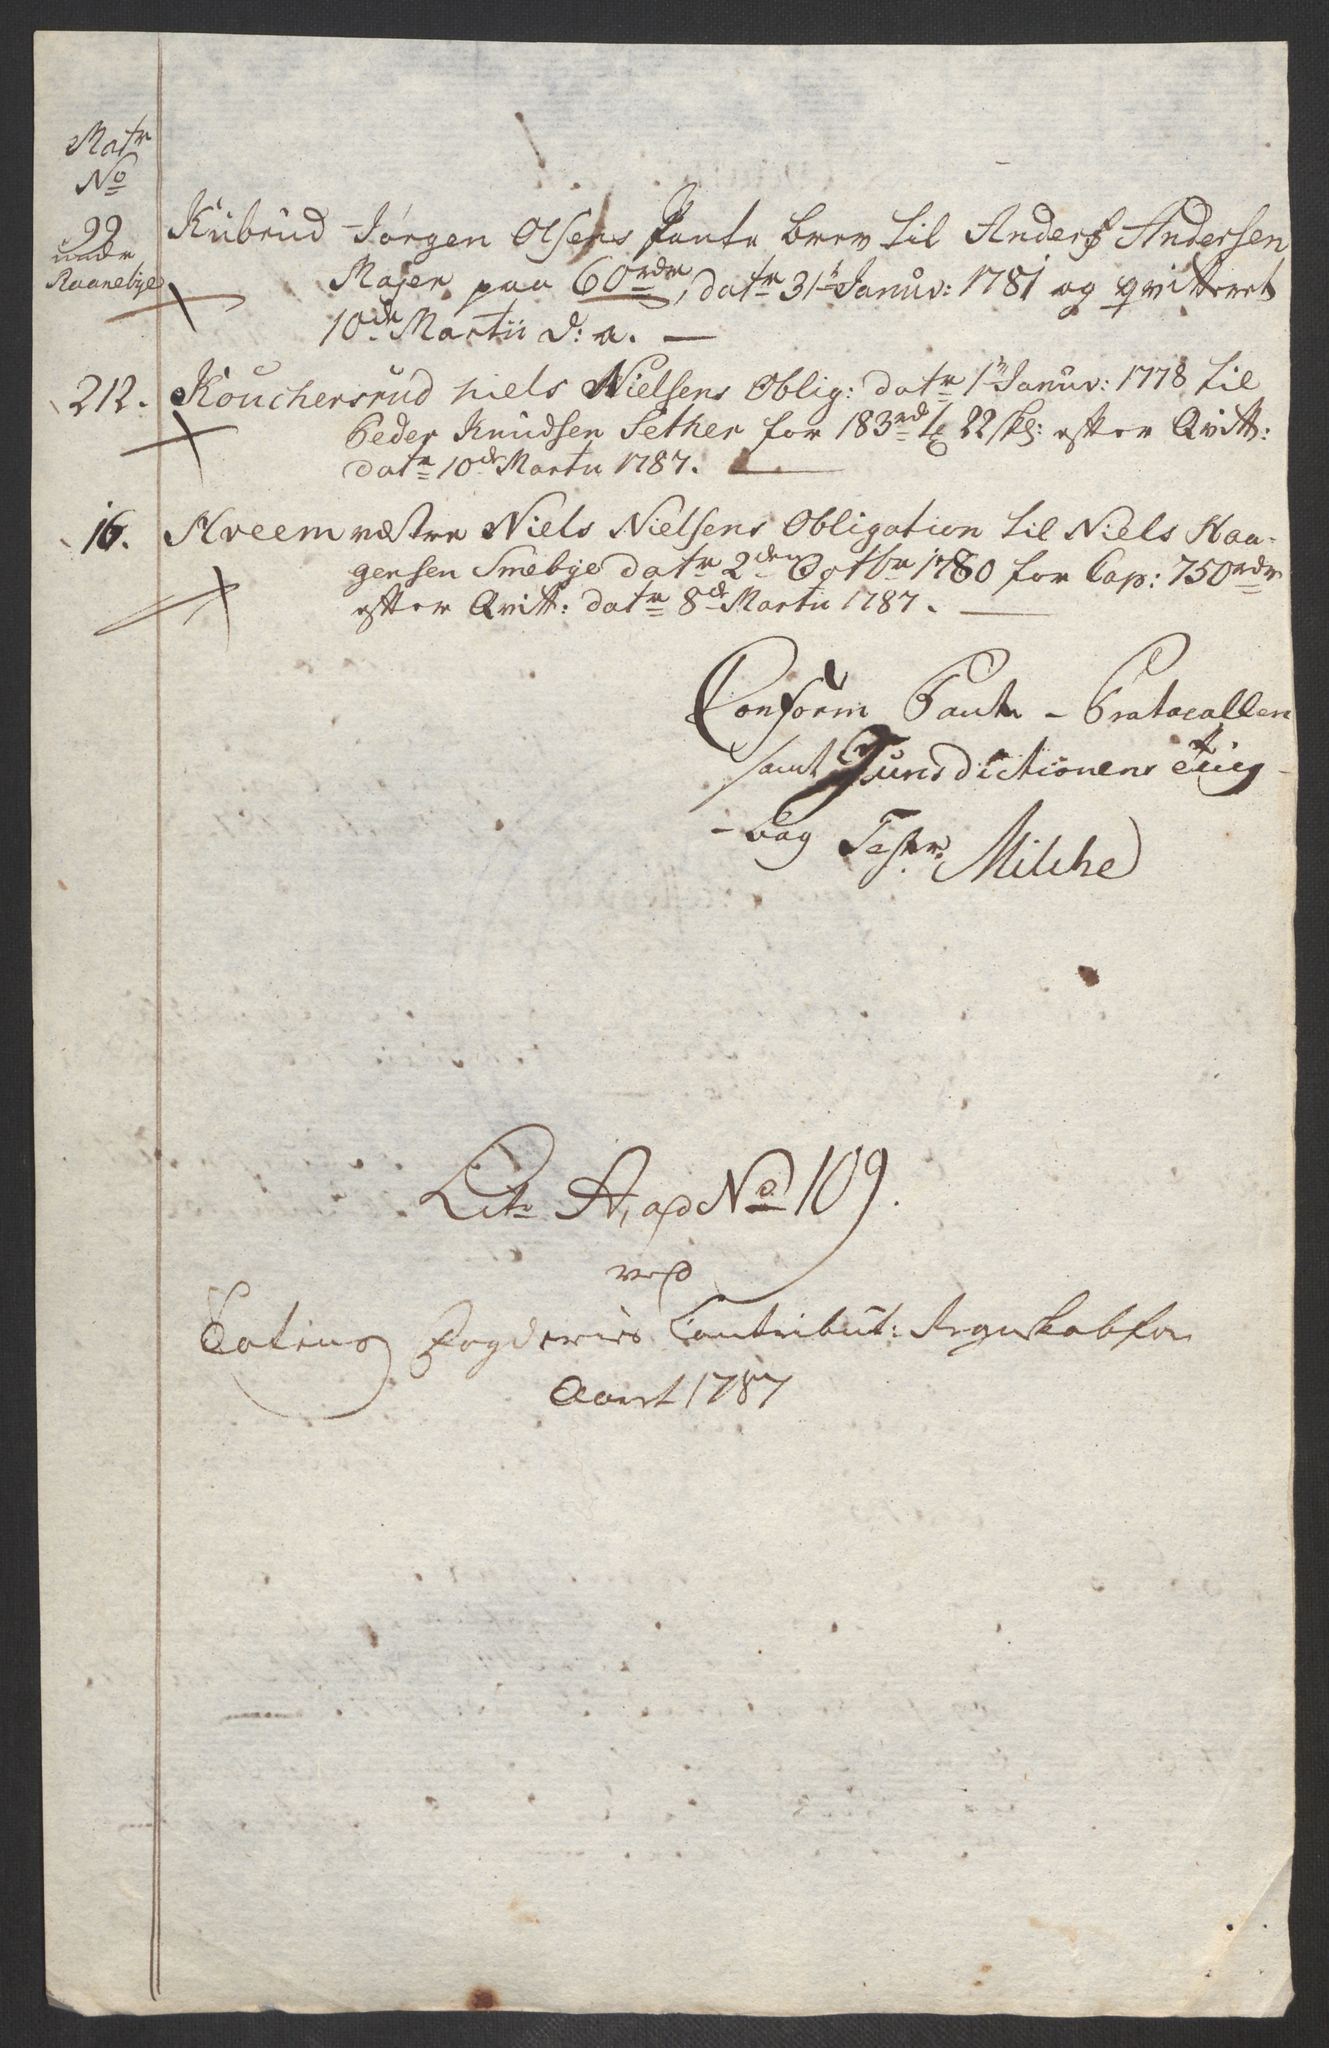 Matr
No
99
under
Raanebye
Kubrud Jørgen Olsens Pante brev til Anders Andersen
Majer paa 60rdr, datr 31t Januv: 1781 og qvitteret
10de Martii d: a. —
212. Kouchersrud Niels Nielsens Oblig: datr 1t Januv: 1778 til
Peder Knudsen Sether for 183rd 22 sk: efter Qvitt:
datr 10de Martii 1787. —
16. Kreem vestre Niels Nielsens Obligation til Niels Haa-
gensen Smebye datr 2den Octbr 1780 for Cap: 750rdr
efter Qvitt: datr 8de Martii 1787. —
Conform Pante-Protocollen
samt Jurisdictionens Ting-
-bog Test. Milche
Litr A, ad No 109.
ved
Totens Fogderies Contribut: Regnskab for
Aaret 1787